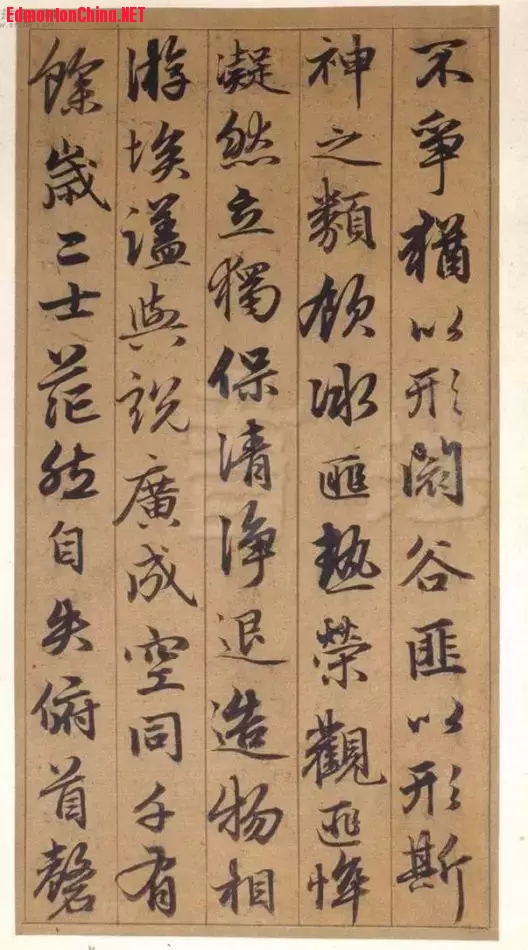 EdmontonChina.NET
不爭猶以形谷匪以形斯
神之類冰匪熱榮觀匪悴
凝然立獨保清淨退造物相
游埃與説廣成空同千有
餘歲二士茫然自失俯首磬